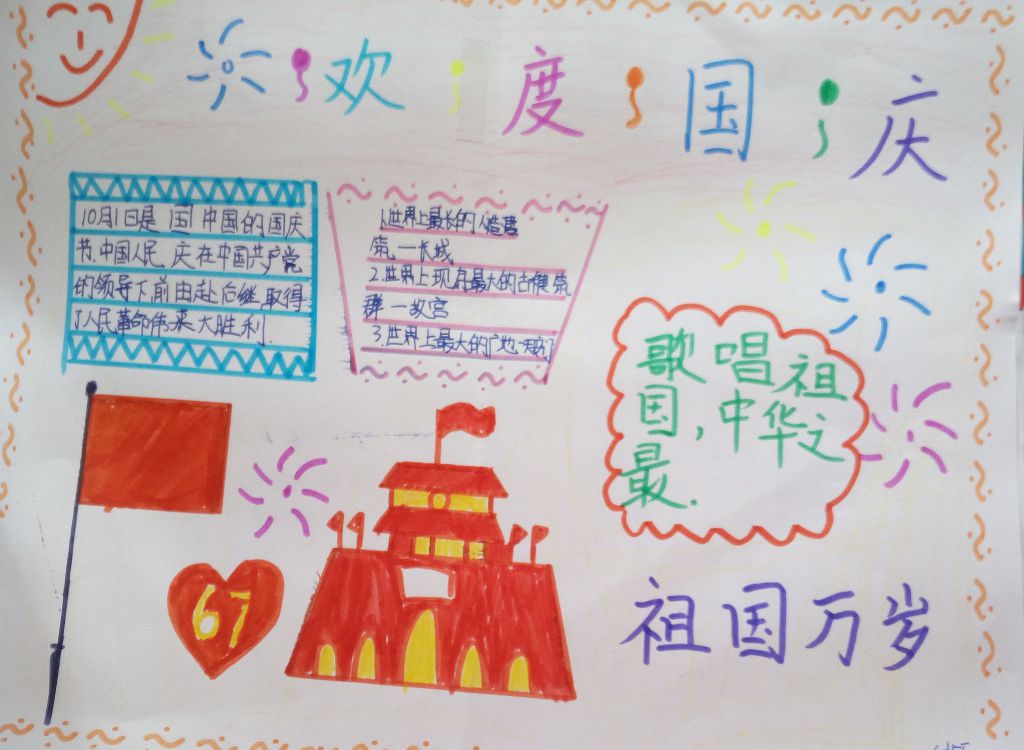 欢度国庆
10月1日是国中国的国庆
节.中国人民庆在中国共产党
的领导下,前由赴后继,取得
了人民革命伟来大胜利.
1.世界上最长的人造建
筑一长城
2.世界上现存最大的古建筑
群一故宫
3.世界上最大的广地天安门
歌唱祖
国,中华之
最.
67
祖国万岁